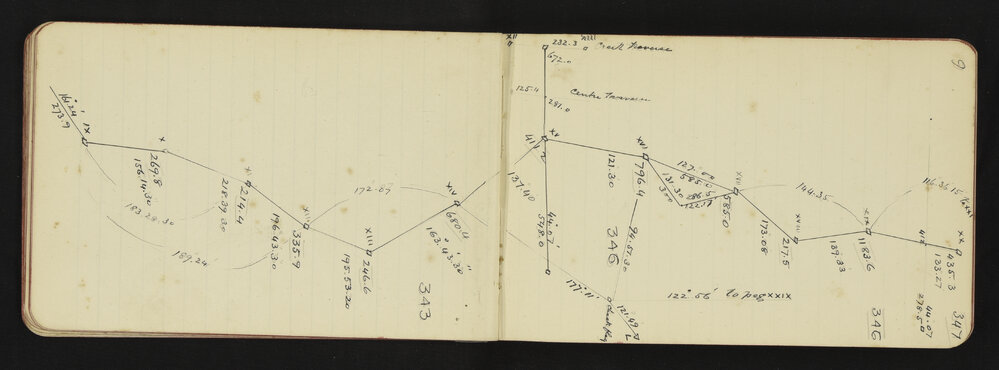 IX
16°24'
273.9
X
269.8
156.14.30
183.28.30
189.24'
XI
214.4
218.39.30
172.07
XII
335.9
196.43.30
XIII
246.6
195.53.20
XIV
680.4
163°43'30"
343
XII
232.3
Creek Traverse
672.0
125.11
281.0
Centre Traverse
XV
411
137.40
44.07'
548.0
177°11'
XVI
796.4
121.30
127.00
585.0
131.30
300
286.5
122.19
94.57.30
346
XVII
585.0
173.08
144.35
XVIII
217.5
139.33
XIX
1183.6
116.36.15
XX
435.3
133.27
44.07
278.50
347
346
122°56' To peg XXIX
9